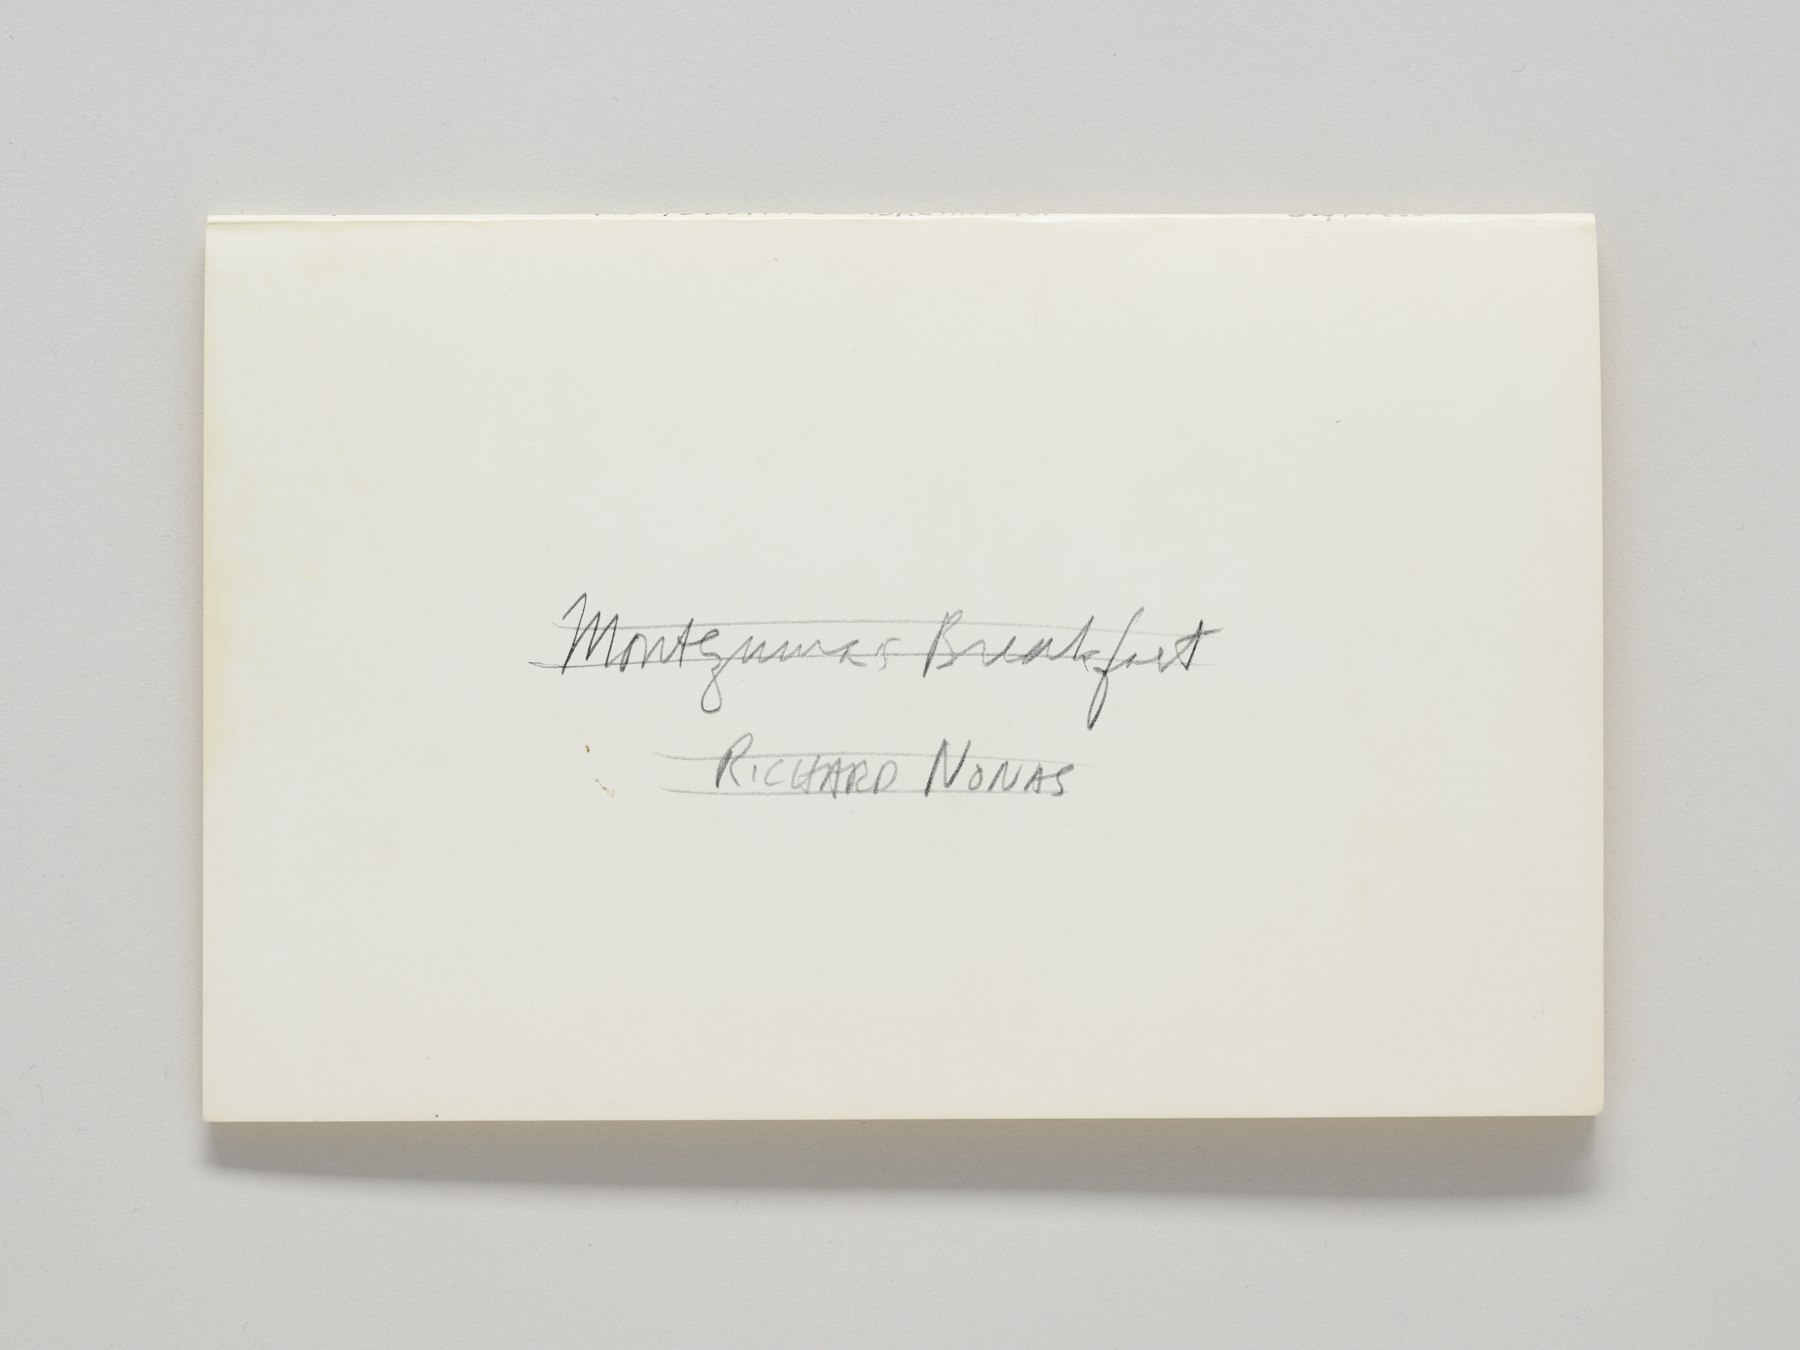 Montezumas Breakfast
RICHARD NONAS